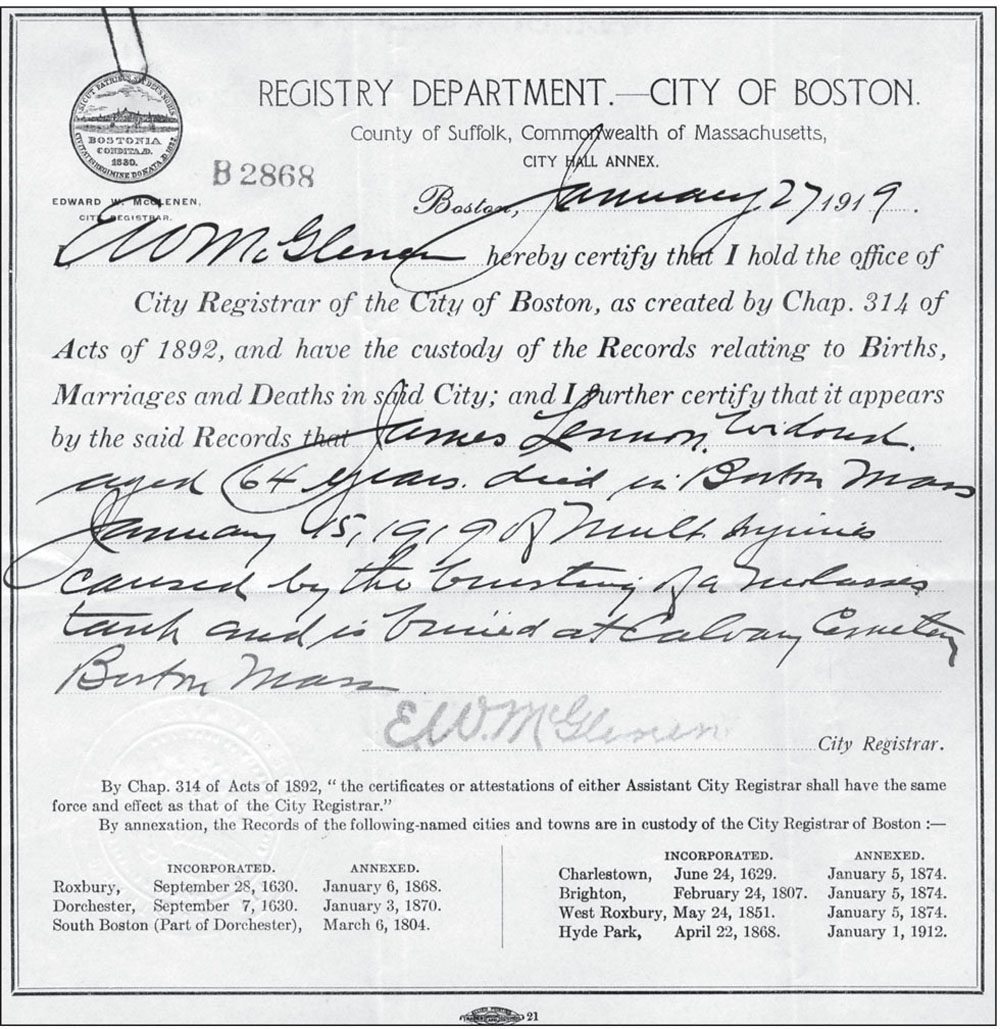 REGISTRY DEPARTMENT.—CITY OF BOSTON.
County of Suffolk, Commonwealth of Massachusetts,
CITY HALL ANNEX.
BOSTONIA
CONDITA A.D.
1630.
B 2868
EDWARD W. McGLENEN,
CITY REGISTRAR.
Boston, January 27 1919.
E W McGlenen hereby certify that I hold the office of
City Registrar of the City of Boston, as created by Chap. 314 of
Acts of 1892, and have the custody of the Records relating to Births,
Marriages and Deaths in said City; and I further certify that it appears
by the said Records that James Lennon, Widowed
aged 64 years. died in Boston Mass
January 15, 1919 of Mult. Injuries
caused by the bursting of a molasses
tank and is buried at Calvary Cemetery
Boston Mass
E.W. McGlenen
City Registrar.
By Chap. 314 of Acts of 1892, “ the certificates or attestations of either Assistant City Registrar shall have the same
force and effect as that of the City Registrar.”
By annexation, the Records of the following-named cities and towns are in custody of the City Registrar of Boston :—
INCORPORATED. ANNEXED.
Roxbury, September 28, 1630. January 6, 1868.
Dorchester, September 7, 1630. January 3, 1870.
South Boston (Part of Dorchester), March 6, 1804.
INCORPORATED. ANNEXED.
Charlestown, June 24, 1629. January 5, 1874.
Brighton, February 24, 1807. January 5, 1874.
West Roxbury, May 24, 1851. January 5, 1874.
Hyde Park, April 22, 1868. January 1, 1912.
21